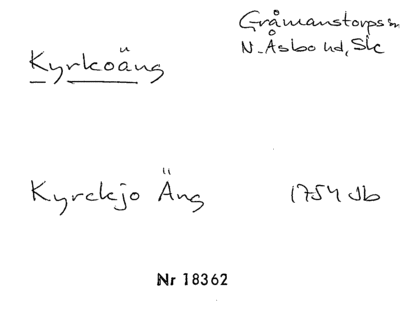 Gråmanstorps sn
N. Åsbo hd, Sk
Kyrkoäng
Kyrckjo Äng 1754 Jb
Nr 18362